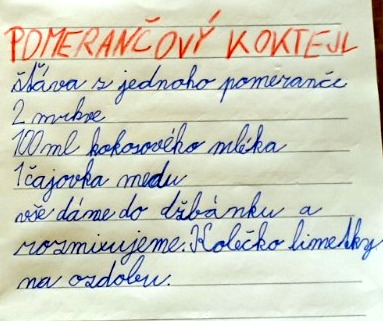 POMERANČOVÝ KOKTEJL
šťáva z jednoho pomeranče
2 mrkve
100ml kokosového mléka
1 čajovka medu
vše dáme do džbánku a
rozmixujeme. Kolečko limetky
na ozdobu.